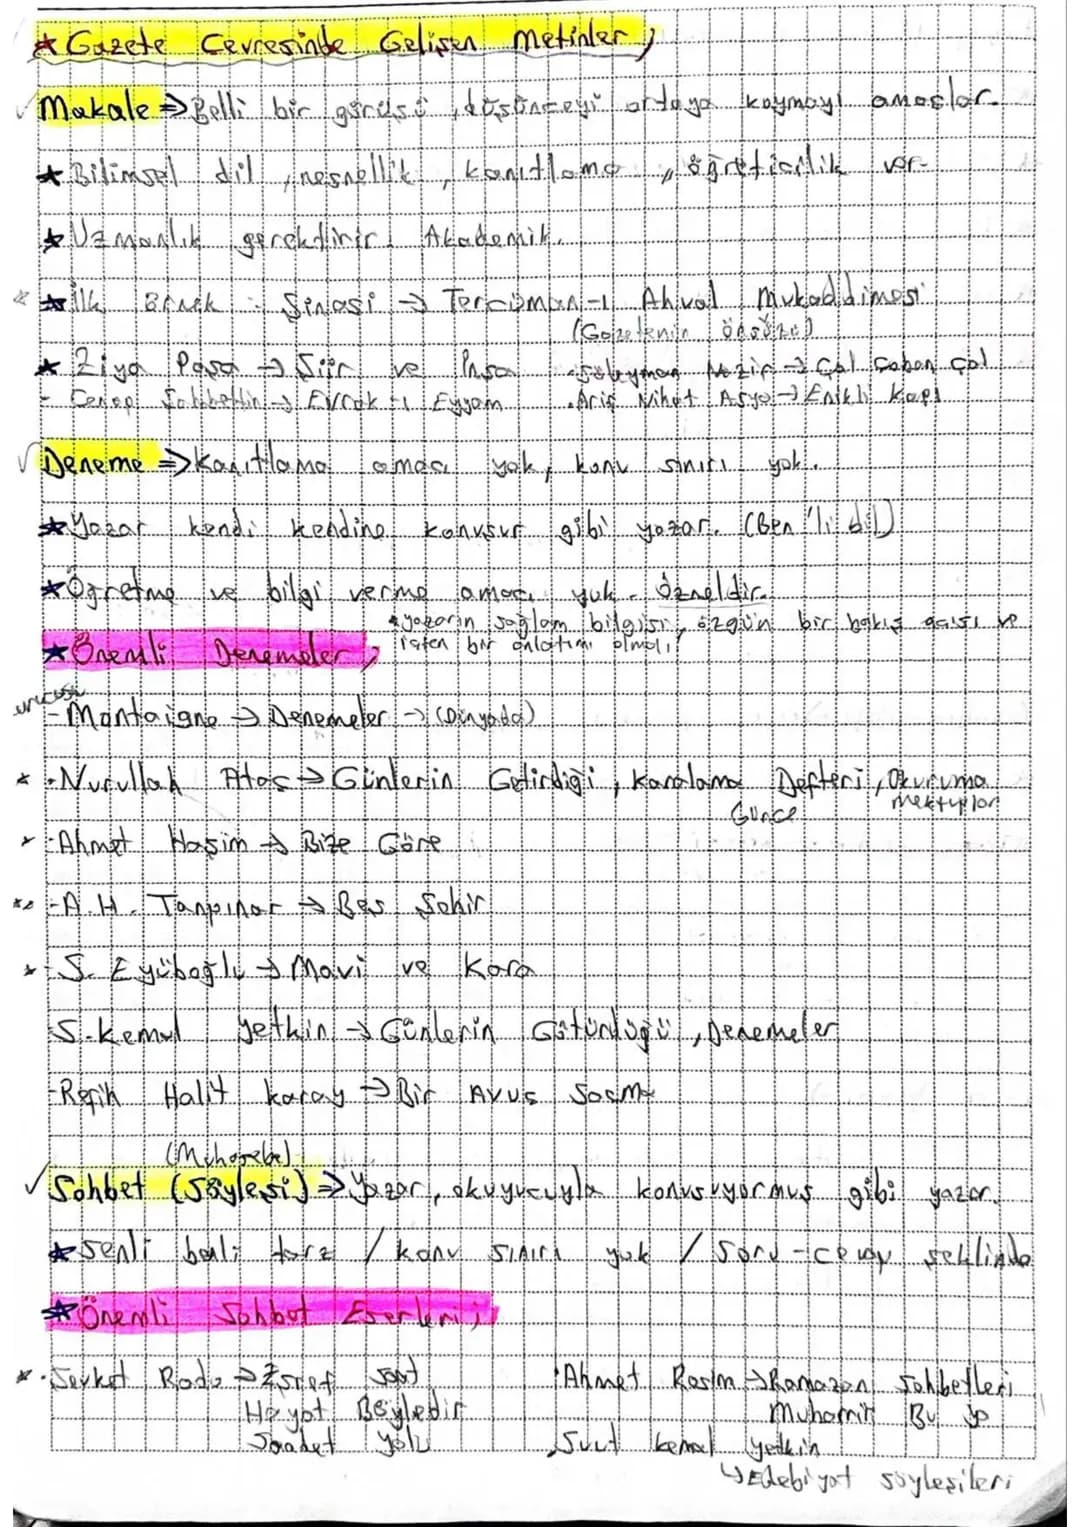 ★ Gazete Çevresinde Gelişen Metinler;
✓ Makale => Belli bir görüşü, düşünceyi ortaya koymayı amaçlar.
★ Bilimsel dil, nesnellik, kanıtlama, öğreticilik var.
★ Uzmanlık gerektirir. Akademik.
★ İlk Örnek : Şinasi → Tercüman-ı Ahval Mukaddimesi
(Gazetenin önsözü)
★ Ziya Paşa → Şiir ve İnşa • Süleyman Nazif → Çal Çoban Çal
- Cenap Şahbettin → Evrak-ı Eyyam • Arif Nihat Asya → Enikli Kapı
✓ Deneme => Kanıtlama amacı yok, konu sınırı yok.
★ Yazar kendi kendine konuşur gibi yazar. (Ben'li dil)
★ Öğretme ve bilgi verme amacı yok. Özneldir.
★ yazarın sağlam bilgisi, özgün bir bakış açısı ve
★ Önemli Denemeler; içten bir anlatımı olmalı
- Montaigne → Denemeler → (Dünyada)
★ - Nurullah Ataç → Günlerin Getirdiği, Karalama Defteri, Okuruma
Günce mektuplar
- Ahmet Haşim → Bize Göre
- A.H. Tanpınar → Beş Şehir
- S. Eyüboğlu → Mavi ve Kara
S. Kemal Yetkin → Günlerin Götürdüğü, Denemeler
- Refik Halit Karay → Bir Avuç Saçma
(Muhasebe)
✓ Sohbet (Söyleşi) => Yazar, okuyucuyla konuşuyormuş gibi yazar.
★ Senli benli tarz / konu sınırı yok / Soru-cevap şeklinde
★ Önemli Sohbet Eserleri;
★ • Şevket Rado → Eşref Saat • Ahmet Rasim → Ramazan Sohbetleri
Hayat Böyledir Muharrir Bu Ya
Saadet Yolu • Suut Kemal Yetkin
↳ Edebiyat söyleşileri